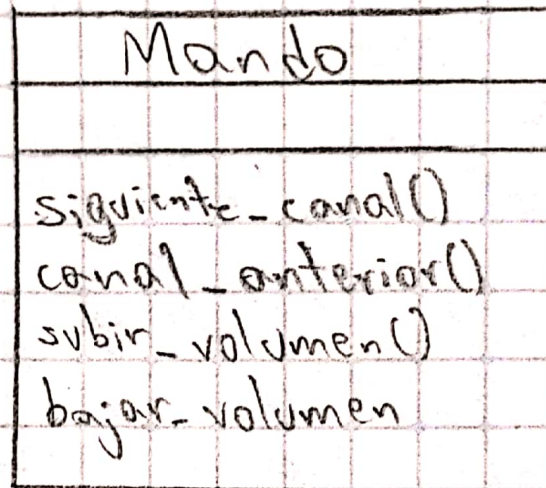 Mando
siguiente_canal()
canal_anterior()
subir_volumen()
bajar_volumen